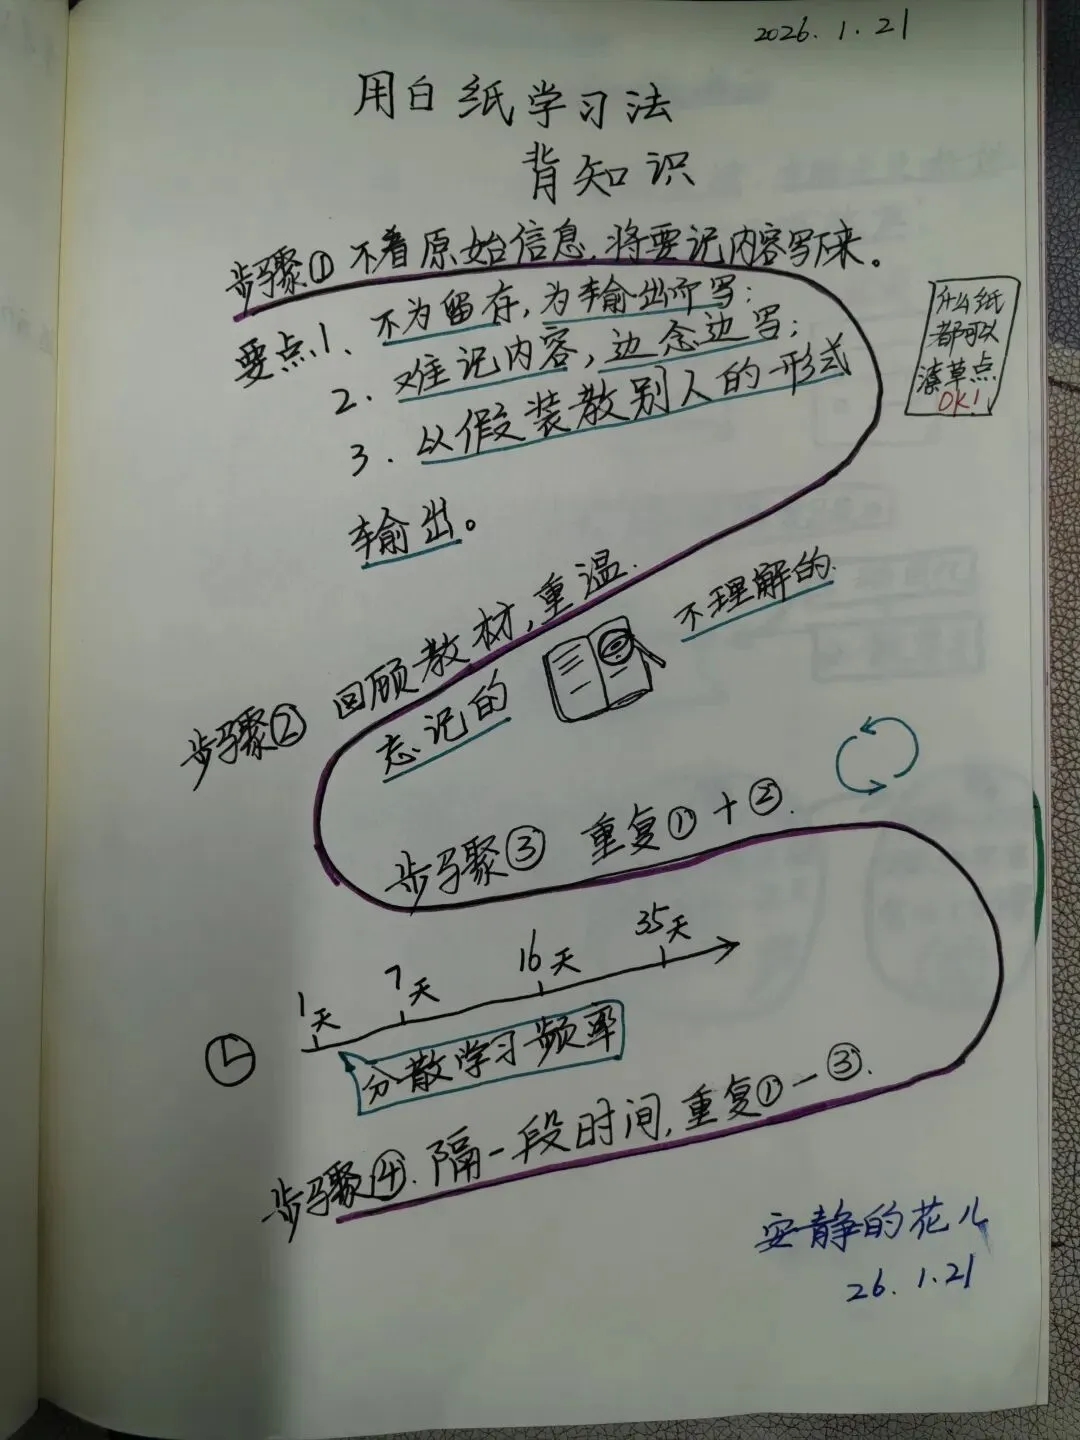 2026.1.21
用白纸学习法
背知识
步骤① 不看原始信息,将要记内容写下来。
要点1、不为留存,为输出而写;
2、难记内容,边念边写;
3.以假装教别人的形式
输出。
什么纸
都可以
潦草点
OK!
步骤② 回顾教材,重温.
忘记的
不理解的.
步骤③ 重复①+②.
1天
7天
16天
35天
分散学习频率
步骤④.隔一段时间,重复①-③.
安静的花儿
26.1.21